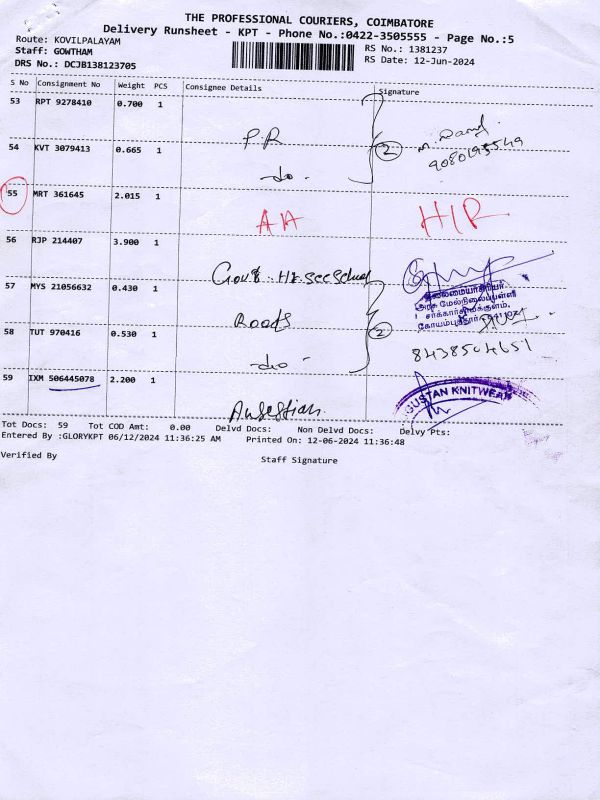 THE PROFESSIONAL COURIERS, COIMBATORE
Delivery Runsheet - KPT - Phone No.:0422-3505555 - Page No.:5
Route: KOVILPALAYAM
Staff: GOWTHAM
DRS No.: DCJB138123705
RS No.: 1381237
RS Date: 12-Jun-2024
S No Consignment No Weight PCS Consignee Details Signature
53 RPT 9278410 0.700 1
P.R
54 KVT 3079413 0.665 1
2
9080193549
-do-
55 MRT 361645 2.015 1
AA H/R
56 RJP 214407 3.900 1
Govt. Hr. Sec School
57 MYS 21056632 0.430 1
தலைமையாசிரியர்
அரசு மேல்நிலைப்பள்ளி
சர்க்கார்சாமக்குளம்,
Roads
2
58 TUT 970416 0.530 1
8438504651
-do-
59 IXM 506445078 2.200 1
GUSTAN KNITWEAR
Tot Docs: 59 Tot COD Amt: 0.00 Delvd Docs: Non Delvd Docs: Delvy Pts:
Entered By :GLORYKPT 06/12/2024 11:36:25 AM Printed On: 12-06-2024 11:36:48
Verified By Staff Signature